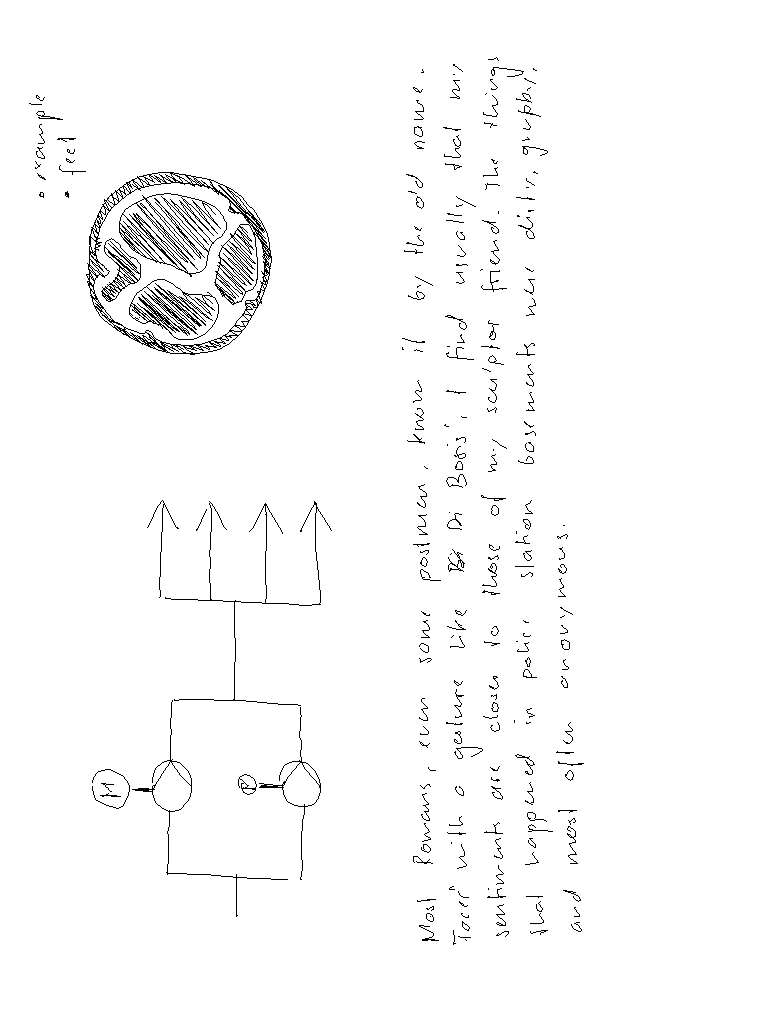 • example
• feet
M
P
Most Romans, even some postmen, know it by the old name.
Tacet" with a gesture like Di Boris', I find usually that my
sentiments are closer to those of my sculptor friend. The things
that happened in police station basements were dirty, grubby,
and most often anonymous.